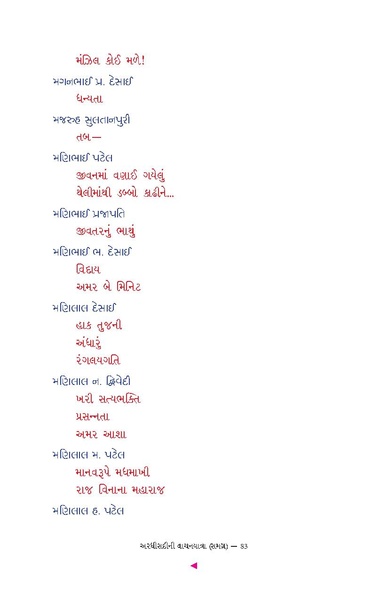 મંઝિલ કોઈ મળે!
મગનભાઈ પ્ર. દેસાઈ
ધન્યતા
મજરુહ સુલતાનપુરી
તબ—
મણિભાઈ પટેલ
જીવનમાં વણાઈ ગયેલું
થેલીમાંથી ડબ્બો કાઢીને...
મણિભાઈ પ્રજાપતિ
જીવતરનું ભાથું
મણિભાઈ ભ. દેસાઈ
વિદાય
અમર બે મિનિટ
મણિલાલ દેસાઈ
હાક તુજની
અંધારું
રંગલયગતિ
મણિલાલ ન. દ્વિવેદી
ખરી સત્યભક્તિ
પ્રસન્નતા
અમર આશા
મણિલાલ મ. પટેલ
માનવરૂપે મધમાખી
રાજ વિનાના મહારાજ
મણિલાલ હ. પટેલ
અરધીસદીની વાચનયાત્રા (સમગ્ર) — 83